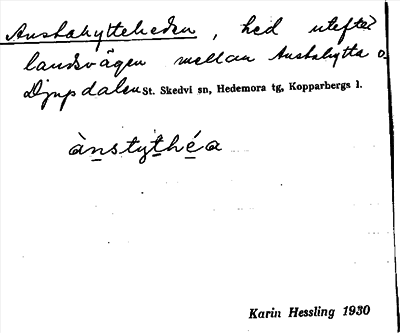 Anstahytteheden, hed utefter
landsvägen mellan Anstahytta o.
Djupdalen St. Skedvi sn, Hedemora tg, Kopparbergs l.
ànstythéa
Karin Hessling 1930